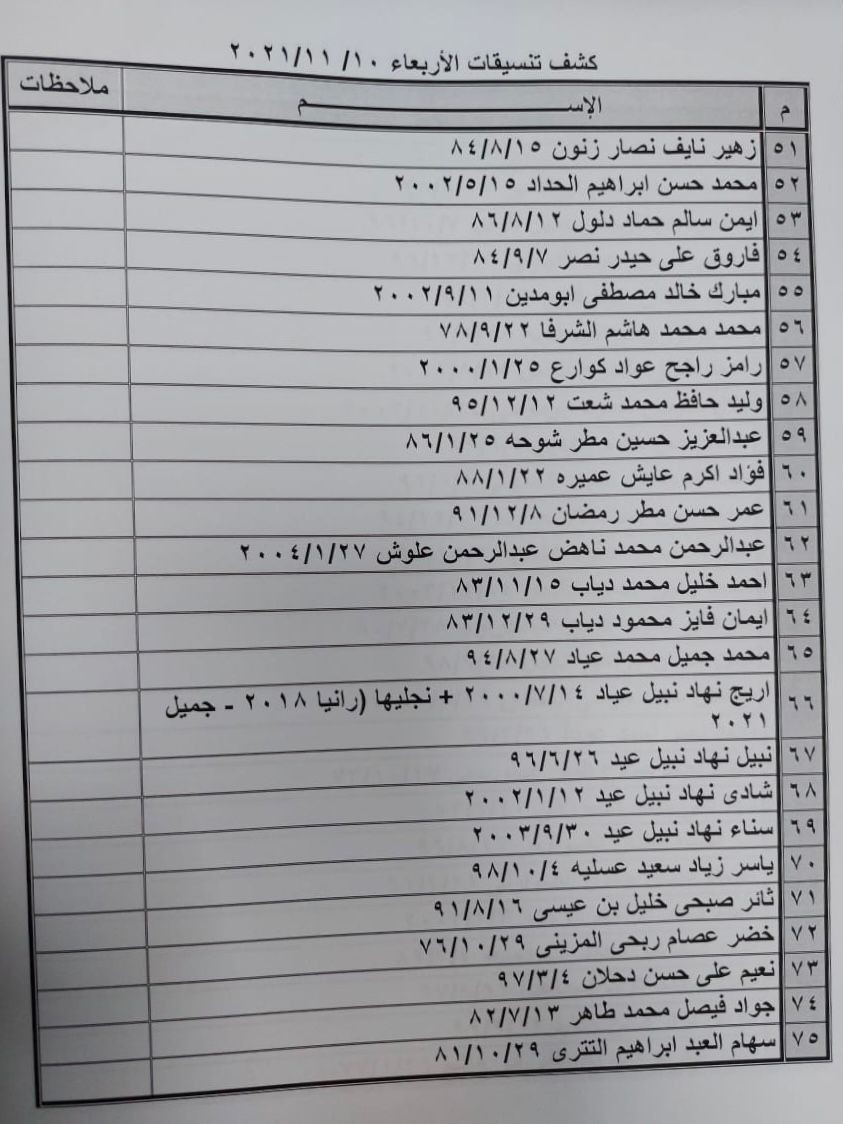 كشف تنسيقات الأربعاء ١٠/ ٢٠٢١/١١
م الإســـــــــــم ملاحظات
٥١ زهير نايف نصار زنون ٨٤/٨/١٥
٥٢ محمد حسن ابراهيم الحداد ٢٠٠٢/٥/١٥
٥٣ ايمن سالم حماد دلول ٨٦/٨/١٢
٥٤ فاروق على حيدر نصر ٨٤/٩/٧
٥٥ مبارك خالد مصطفى ابومدين ٢٠٠٢/٩/١١
٥٦ محمد محمد هاشم الشرفا ٧٨/٩/٢٢
٥٧ رامز راجح عواد كوارع ٢٠٠٠/١/٢٥
٥٨ وليد حافظ محمد شعت ٩٥/١٢/١٢
٥٩ عبدالعزيز حسين مطر شوحه ٨٦/١/٢٥
٦٠ فؤاد اكرم عايش عميره ٨٨/١/٢٢
٦١ عمر حسن مطر رمضان ٩١/١٢/٨
٦٢ عبدالرحمن محمد ناهض عبدالرحمن علوش ٢٠٠٤/١/٢٧
٦٣ احمد خليل محمد دياب ٨٣/١١/١٥
٦٤ ايمان فايز محمود دياب ٨٣/١٢/٢٩
٦٥ محمد جميل محمد عياد ٩٤/٨/٢٧
٦٦ اريج نهاد نبيل عياد ٢٠٠٠/٧/١٤ + نجليها (رانيا ٢٠١٨ - جميل
٢٠٢١
٦٧ نبيل نهاد نبيل عيد ٩٦/٦/٢٦
٦٨ شادى نهاد نبيل عيد ٢٠٠٢/١/١٢
٦٩ سناء نهاد نبيل عيد ٢٠٠٣/٩/٣٠
٧٠ ياسر زياد سعيد عسليه ٩٨/١٠/٤
٧١ ثائر صبحى خليل بن عيسى ٩١/٨/١٦
٧٢ خضر عصام ربحى المزينى ٧٦/١٠/٢٩
٧٣ نعيم على حسن دحلان ٩٧/٣/٤
٧٤ جواد فيصل محمد طاهر ٨٢/٧/١٣
٧٥ سهام العبد ابراهيم التترى ٨١/١٠/٢٩